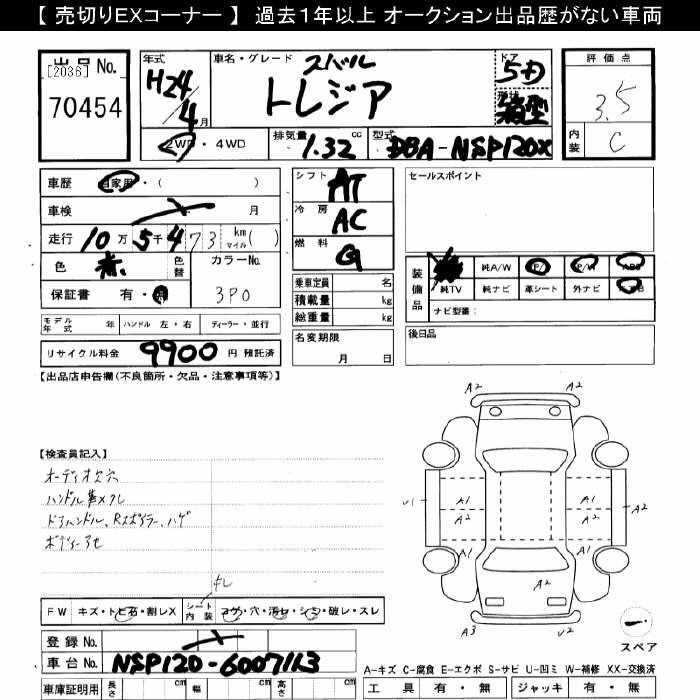 【 売切りEXコーナー 】 過去1年以上 オークション出品歴がない車両
出品No.
[2036]
70454
年式
H24/4月
車名・グレード
スバル
トレジア
ドア
5D
形状
箱型
評価点
3.5
内装
C
2WD・4WD
排気量 1.32 cc
型式 DBA-NSP120X
車歴 自家用・( )
車検 月
走行 10万5千473 km マイル( )
色 赤 色替 カラーNo.
3P0
保証書 有・無
シフト AT
冷房 AC
燃料 G
乗車定員 名
積載量 kg
総重量 kg
名変期限
月 日
セールスポイント
装備品
純A/W P/S P/W ABS
純TV 純ナビ 革シート 外ナビ
ナビ型番：
後日品
モデル年式 年 ハンドル 左・右 ディーラー・並行
リサイクル料金 9900 円 預託済
【出品店申告欄(不良箇所・欠品・注意事項等)】
【検査員記入】
オーディオ欠穴
ハンドル革スレ
ドアハンドル、Rスポイラーハゲ
ボディーアセ
スレ
FW キズ・トビ石・割レX シート内装 コゲ・穴・汚レ・シミ・破レ・スレ
登録No.
車台No. NSP120-6007113
車庫証明用 長さ cm 幅 cm 高さ cm
A2
A2
U1
A1
A2
A1
A2
A2
A1
A1
A2
A3
U2
スペア
A-キズ C-腐食 E-エクボ S-サビ U-凹ミ W-補修 XX-交換済
工具 有・無 ジャッキ 有・無